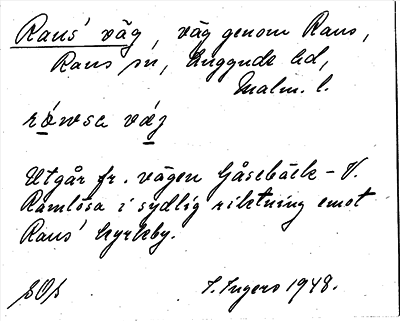 Raus' väg, väg genom Raus,
Raus sn, Luggude hd,
Malm. l.
rówsa väg
Utgår fr. vägen Gåsebäck - V.
Ramlösa i sydlig riktning emot
Raus' kyrkby.
SOS
I. Ingers 1948.